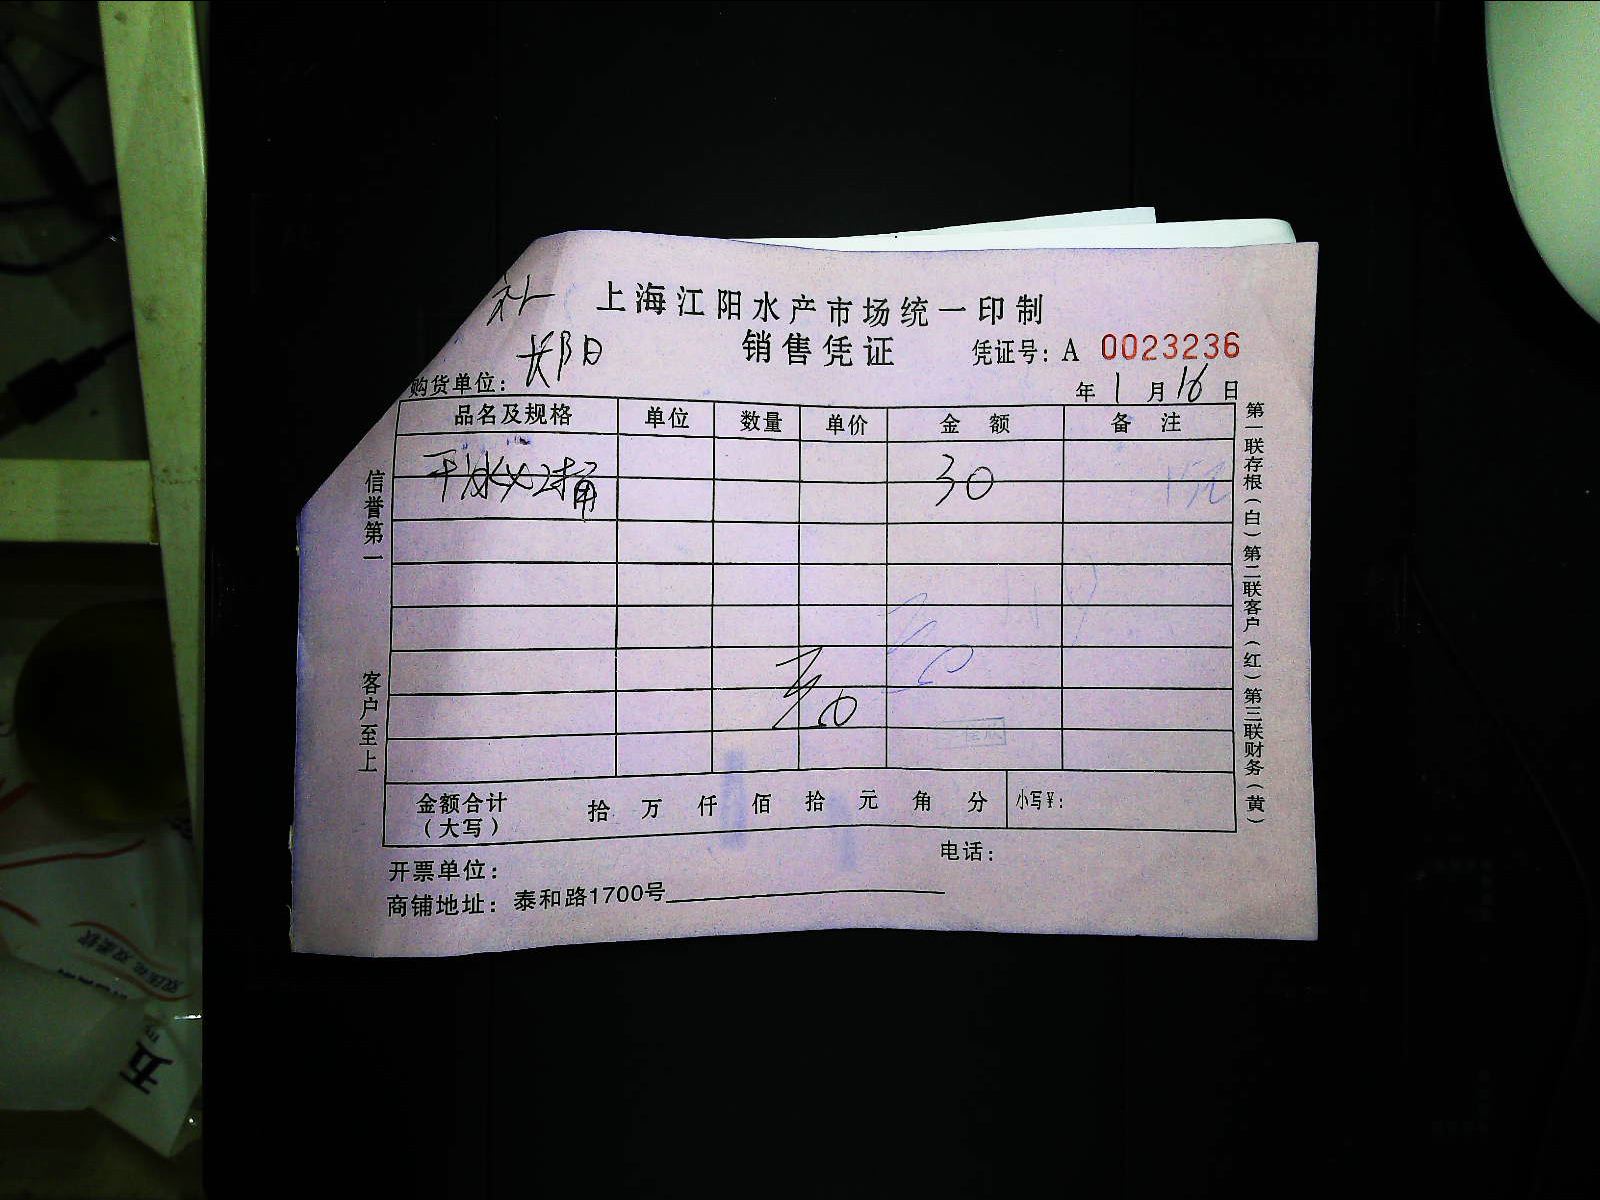 补
上海江阳水产市场统一印制
销售凭证
凭证号：A 0023236
购货单位：
年 1 月 16 日
品名及规格 单位 数量 单价 金额 备注
30
金额合计（大写） 拾 万 仟 佰 拾 元 角 分 小写¥：
开票单位：
电话：
商铺地址：泰和路1700号
信誉第一
客户至上
第一联存根（白）第二联客户（红）第三联财务（黄）
五